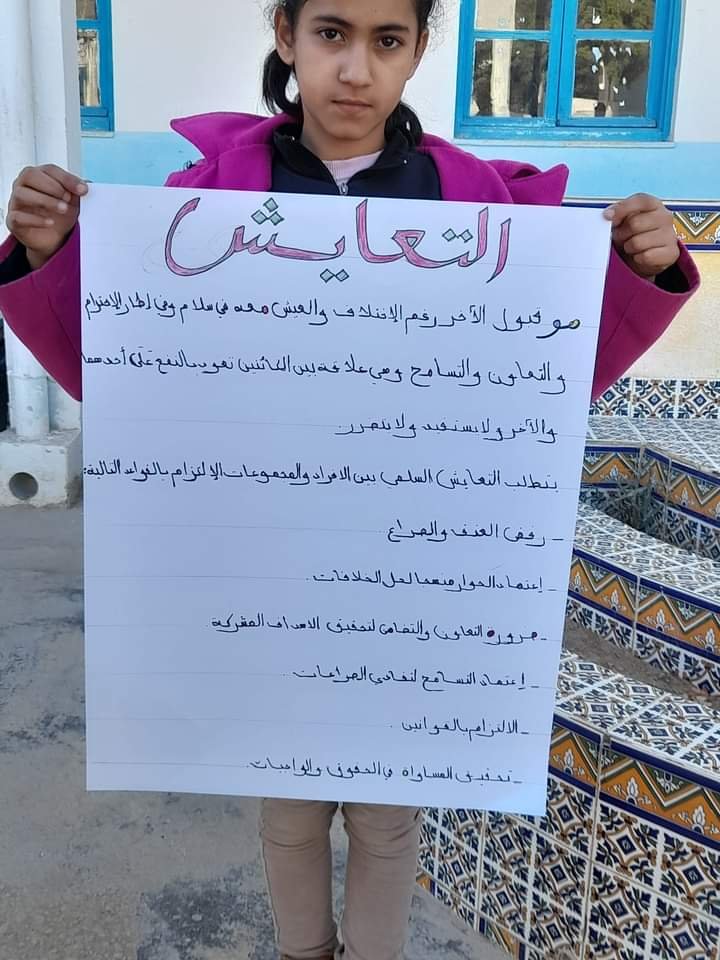 التعايش
هو قبول الآخر رغم الإختلاف والعيش معه في سلام وفي إطار الاحترام
والتعاون والتسامح وهي علاقة بين الكائنين تعود بالنفع على أحدهما
والآخر ولا يستفيد ولا يتضرر.
يتطلب التعايش السلمي بين الافراد والمجموعات الإلتزام بالقواعد التالية:
- رفض العنف والصراع
- إعتماد الحوار منهجا لحل الخلافات.
- ضرورة التعاون والتضامن لتحقيق الاهداف المشتركة.
- إعتماد التسامح لتفادي الصراعات.
- الالتزام بالقوانين.
- تحقيق المساواة في الحقوق والواجبات.